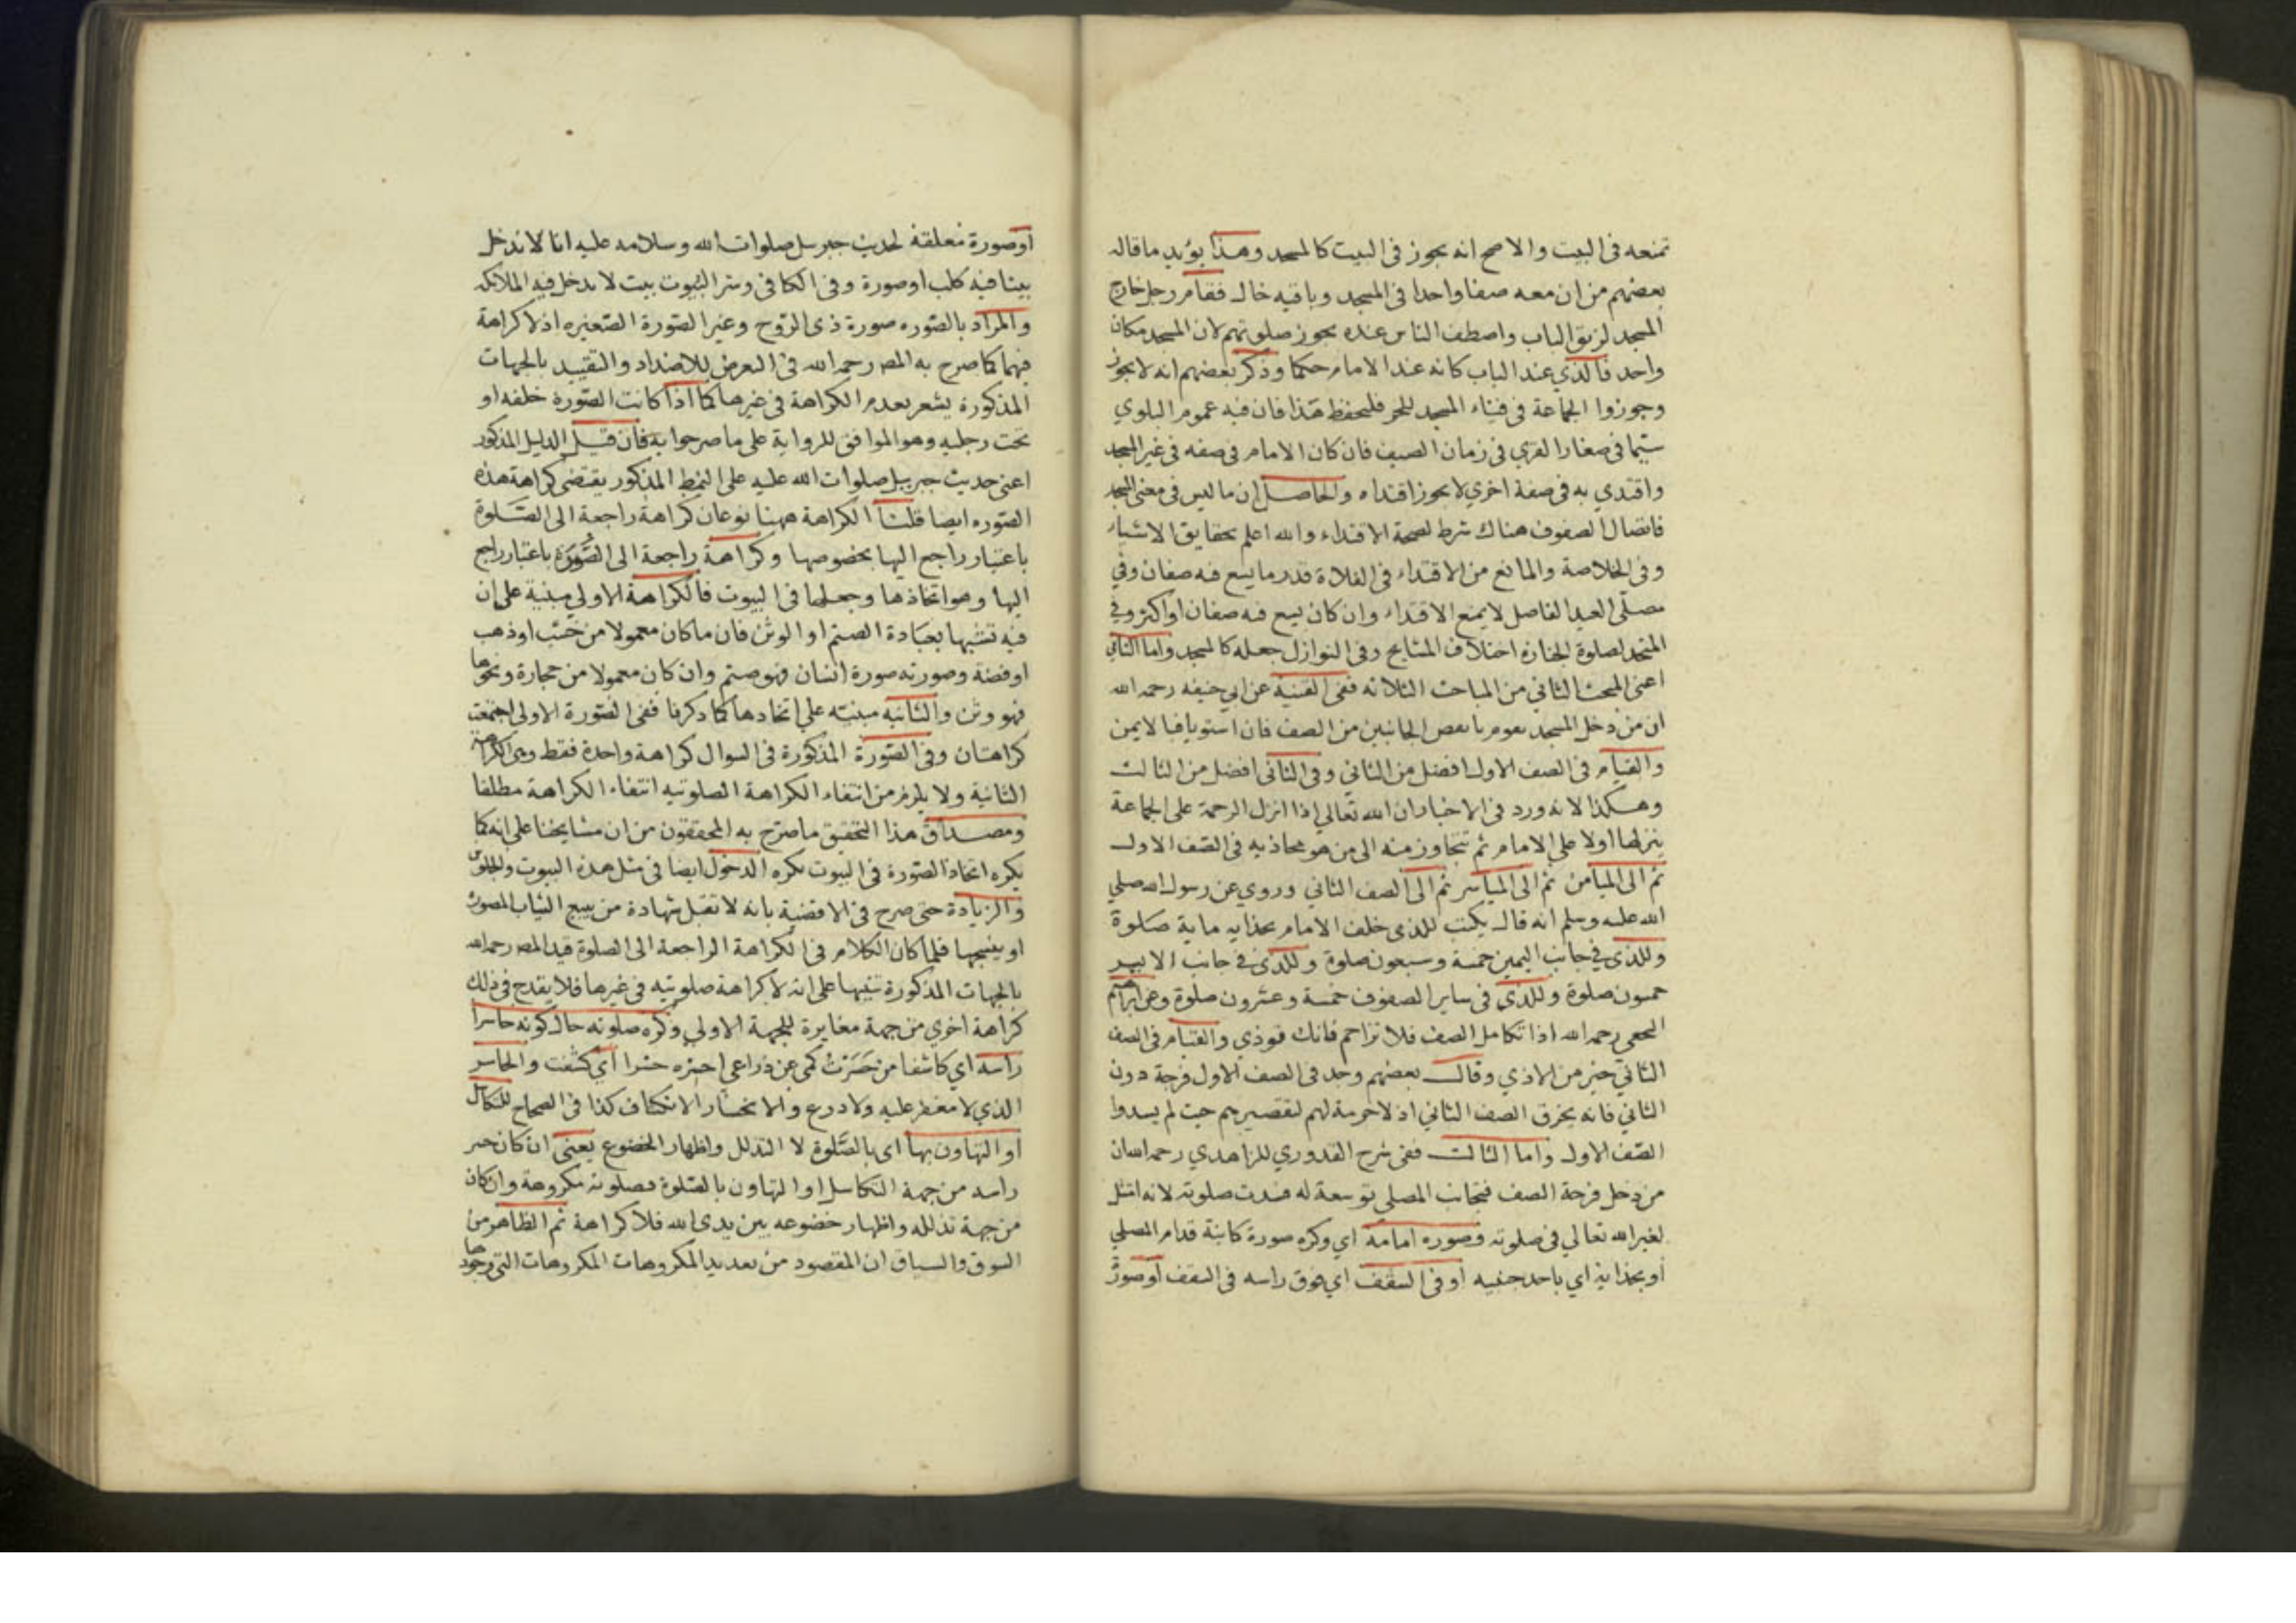 تمنعه في البيت والاصح انه يجوز في البيت كالمسجد وهذا يؤيد ما قاله
بعضهم من ان معه صفا واحدا في المسجد وباقيه خال فقام رجل خارج
المسجد لزيق الباب واصطف الناس عنده يجوز صلوتهم لان المسجد مكان
واحد فالذي عند الباب كانه عند الامام حكما وذكر بعضهم انه لا يجوز
وجوزوا الجماعة في فناء المسجد للحر فليحفظ هذا فان فيه عموم البلوي
سيما في صغار القري في زمان الصيف فان كان الامام في صفه في غير المسجد
واقتدي به في صفة اخري لا يجوز اقتداه والحاصل ان ما ليس في معنى المسجد
فاتصال الصفوف هناك شرط لصحة الاقتداء والله اعلم بحقايق الاشياء
وفي الخلاصة والمانع من الاقتداء في الفلاة قدر ما يسع فيه صفان وفي
مصلي العيد الفاصل لا يمنع الاقتداء وان كان يسع فيه صفان او اكثر وفي
المتخد لصلوة الجنازة اختلاف المشايخ وفي النوازل جعله كالمسجد واما الثاني
اعني المبحث الثاني من المباحث الثلاثه ففي القنية عن ابي حنيفه رحمه الله
ان من دخل المسجد يقوم بانقص الجانبين من الصف فان استويا فبالايمن
والقيام في الصف الاول افضل من الثاني وفي الثاني افضل من الثالث
وهكذا لانه ورد في الاخبار ان الله تعالي اذا انزل الرحمة على الجماعة
ينزلها اولا علي الامام ثم تتجاوز منه الى من هو محاذيه في الصف الاول
ثم الى الميامن ثم الى المياسر ثم الى الصف الثاني وروي عن رسول الله صلي
الله عليه وسلم انه قال يكتب للذي خلف الامام بحذايه ماية صلوة
وللذي في جانب اليمين خمسة وسبعون صلوة وللذي في جانب الايسر
خمسون صلوة وللذي في ساير الصفوف خمسة وعشرون صلوة وعن ابراهيم
النخعي رحمه الله اذا تكامل الصف فلا تزاحم فانك توذي والقيام في الصف
الثاني خير من الاذي وقال بعضهم وجد في الصف الاول فرجة دون
الثاني فانه يخرق الصف الثاني اذ لا حرمة لهم لتقصيرهم حيث لم يسدوا
الصف الاول واما الثالث ففي شرح القدوري للزاهدي رحمه الله ان
من دخل فرجة الصف فتجانب المصلي توسعة له فسدت صلوته لانه امتثل
لغير الله تعالي في صلوته وصوره امامه اي وكره صورة كاينة قدام المصلي
او بحذايه اي باحد جنبيه او في السقف اي فوق راسه في السقف او صورة
او صورة معلقة لحديث جبرسل صلوات الله وسلامه عليه انا لا ندخل
بيتا فيه كلب او صورة وفي الكافي وشر البيوت بيت لا يدخل فيه الملائكه
والمراد بالصوره صورة ذي الروح وغير الصورة الصغيره اذ لا كراهة
فيها كما صرح به المص رحمه الله في التعرض للاضداد والتقييد بالجهات
المذكورة يشعر بعدم الكراهة في غيرها كما اذا كانت الصورة خلفه او
تحت رجليه وهو الموافق للرواية على ما صرحوا به فان قيل الدليل المذكور
اعني حديث جبريل صلوات الله عليه على النمط المذكور يقتضي كراهة هذه
الصوره ايضا قلنا الكراهة ههنا نوعان كراهة راجعة الى الصلوة
باعتبار راجع اليها بخصوصها وكراهة راجعة الى الصورة باعتبار راجع
اليها وهو اتخاذها وجعلها في البيوت فالكراهة الاولي مبنية على ان
فيه تشبها بعبادة الصنم او الوثن فان ما كان معمولا من خشب او ذهب
او فضة وصورته صورة انسان فهو صنم وان كان معمولا من حجارة ونحوها
فهو وثن والثانيه مبنيه علي اتخادها كما ذكرنا ففي الصورة الاولى اجتمعت
كراهتان وفي الصورة المذكورة في السوال كراهة واحدة فقط وهي الكراهة
الثانية ولا يلزم من انتفاء الكراهة الصلوتيه انتفاء الكراهة مطلقا
ومصداق هذا التحقيق ما صرح به المحققون من ان مشايخنا على انه كما
يكره اتخاذ الصورة في البيوت يكره الدخول ايضا في مثل هذه البيوت والجلوس
والزيادة حتى صرح في الاقضية بانه لا تقبل شهادة من يبيع الثياب المصورة
او ينسجها فلما كان الكلام في الكراهة الراجعة الى الصلوة قيد المص رحمه الله
بالجهات المذكورة تنبيها على انه لا كراهة صلوتيه في غيرها فلا يقدح في ذلك
كراهة اخري من جهة مغايرة للجهة الاولي وكره صلوته حال كونه حاسرا
راسه اي كاشفا من حسرت كمي عن ذراعي احسره حسرا اي كشفت والحاسر
الذي لا مغفر عليه ولا درع والانحسار الانكشاف كذا في الصحاح للتكاسل
او التهاون بها اى بالصلوة لا التذلل واظهار الخضوع يعني ان كان حسر
راسه من جهة التكاسل او التهاون بالصلوة فصلوته مكروهة وان كان
من جهة تذلله واظهار خضوعه بين يدي الله فلا كراهة ثم الظاهر من
السوق والسياق ان المقصود من تعديد المكروهات المكروهات التي وجودها